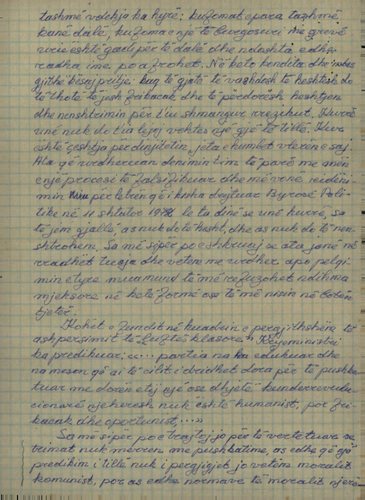 tashmë vdekja ka hyrë; kufomat e para tashmë
kanë dalë, kufoma e një të burgosuri në grevë
urie është gati për të dalë dhe ndoshta edhe
radha ime po afrohet. Në këto kondita dhe mbas
gjithë kësaj pritje; kaq të gjatë të vazhdosh të heshtësh do
të thotë të jesh frikacak dhe të përdorësh heshtjen
dhe nënshtrimin për t'iu shmangur rrezikut. Kurrë
unë nuk do t'ia lejoj vehtes një gjë të tillë. Kur
është çështja për dinjitetin, jeta e humbet vlerën e saj.
Ata që urdhëruan dënimin tim të parë me anën
e një procesi të falsifikuar dhe më vonë ridënimin
për letrën që i kisha drejtuar Byrosë Politike
në 11 shtator 1978 le ta dinë se unë kurrë, sa
të jem gjallë, as nuk do të hesht, dhe as nuk do të nënshtrohem.
Sa më sipër po e shkruaj se ata janë në
rradhët tuaja dhe vetëm me urdhër apo pëlqimin
e tyre mua mund të më refuzohet ndihma
mjekësore në këtë formë ose të më nisin në botën
tjetër.
Kohët e fundit në kuadrin e përgjithshëm të
ashpërsimit të luftës klasore
ka predikuar: «... partia na ka edukuar dhe
na mëson që ai të cilit i dridhet dora për të pushkatuar
me dorën e tij një ose dhjetë kundërrevolucionarë
njëherësh nuk është humanist, por frikacak
dhe oportunist, ...»
Sa më sipër po e trajtoj jo për të vërtetuar se
trimat nuk merren me pushkatime, as edhe që një
predikim i tillë nuk i përgjigjet jo vetëm moralit
komunist, por as edhe normave të moralit njerë-